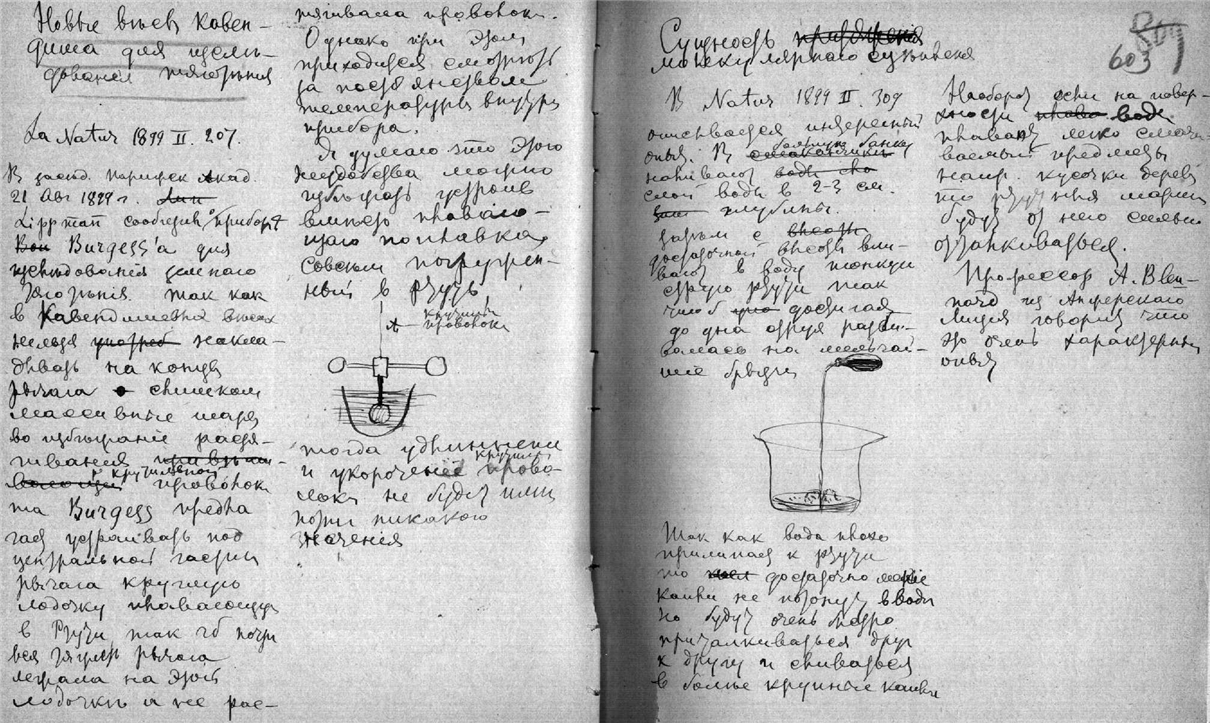 Новые весы Кавен-
диша для изслѣ-
дованія тяготѣнія
La Natur 1899 II. 207.
В засѣд. Париж. Акад.
21 Авг 1899 г.
Lippman сообщил о прибор
Burgess'а для
изслѣдованія земного
тяготѣнія. Так как
в Кавендишевых весах
нельзя накла-
дывать на концы
рычага слишком
массивные шары
во избѣжаніе растя-
гиванія крутильной
проволоки
то Burgess предла
гает устраивать под
центральной частью
рычага круглую
лодочку плавающую
в ртути так чтоб почти
вся тяжесть рычага
лежала на этой
лодочкѣ а не рас-
тягивала проволоки.
Однако при этом
приходится смотрѣть
за постоянством
температуры внутри
прибора.
Я думаю что этого
неудобства можно
избѣжать устроив
вмѣсто плаваю-
щаго поплавка
совсѣм погружен-
ный в ртуть,
крутильн
А — проволока
тогда удлиненіе
и укороченіе крутильн прово-
локи не будет имѣть
почти никакого
значенія
Сущность
молекулярнаго сцѣпленія
В Natur 1899 II. 309
описывается интересный
опыт. В большую банку
наливают
слой воды в 2-3 см.
глубины.
затѣм с
достаточной высоты вли-
вают в воду тонкую
струю ртути так
чтоб достигая
до дна струя разби-
валась на мельчай-
шие брызги
Так как вода плохо
прилипает к ртути
то достаточно мелкіе
капли не потонут в водѣ
но будут очень быстро
притягиваться друг
к другу и сливаться
в более крупные капли
Наоборот если на повер-
хности воды
плавают легко смачи-
ваемый предметы
напр. кусочки дерева
то ртутныя шарики
будут от него сильно
отталкиваться.
Профессор А.
из Анжерскаго
Лицея говорит что
это очень характерный
опыт
603